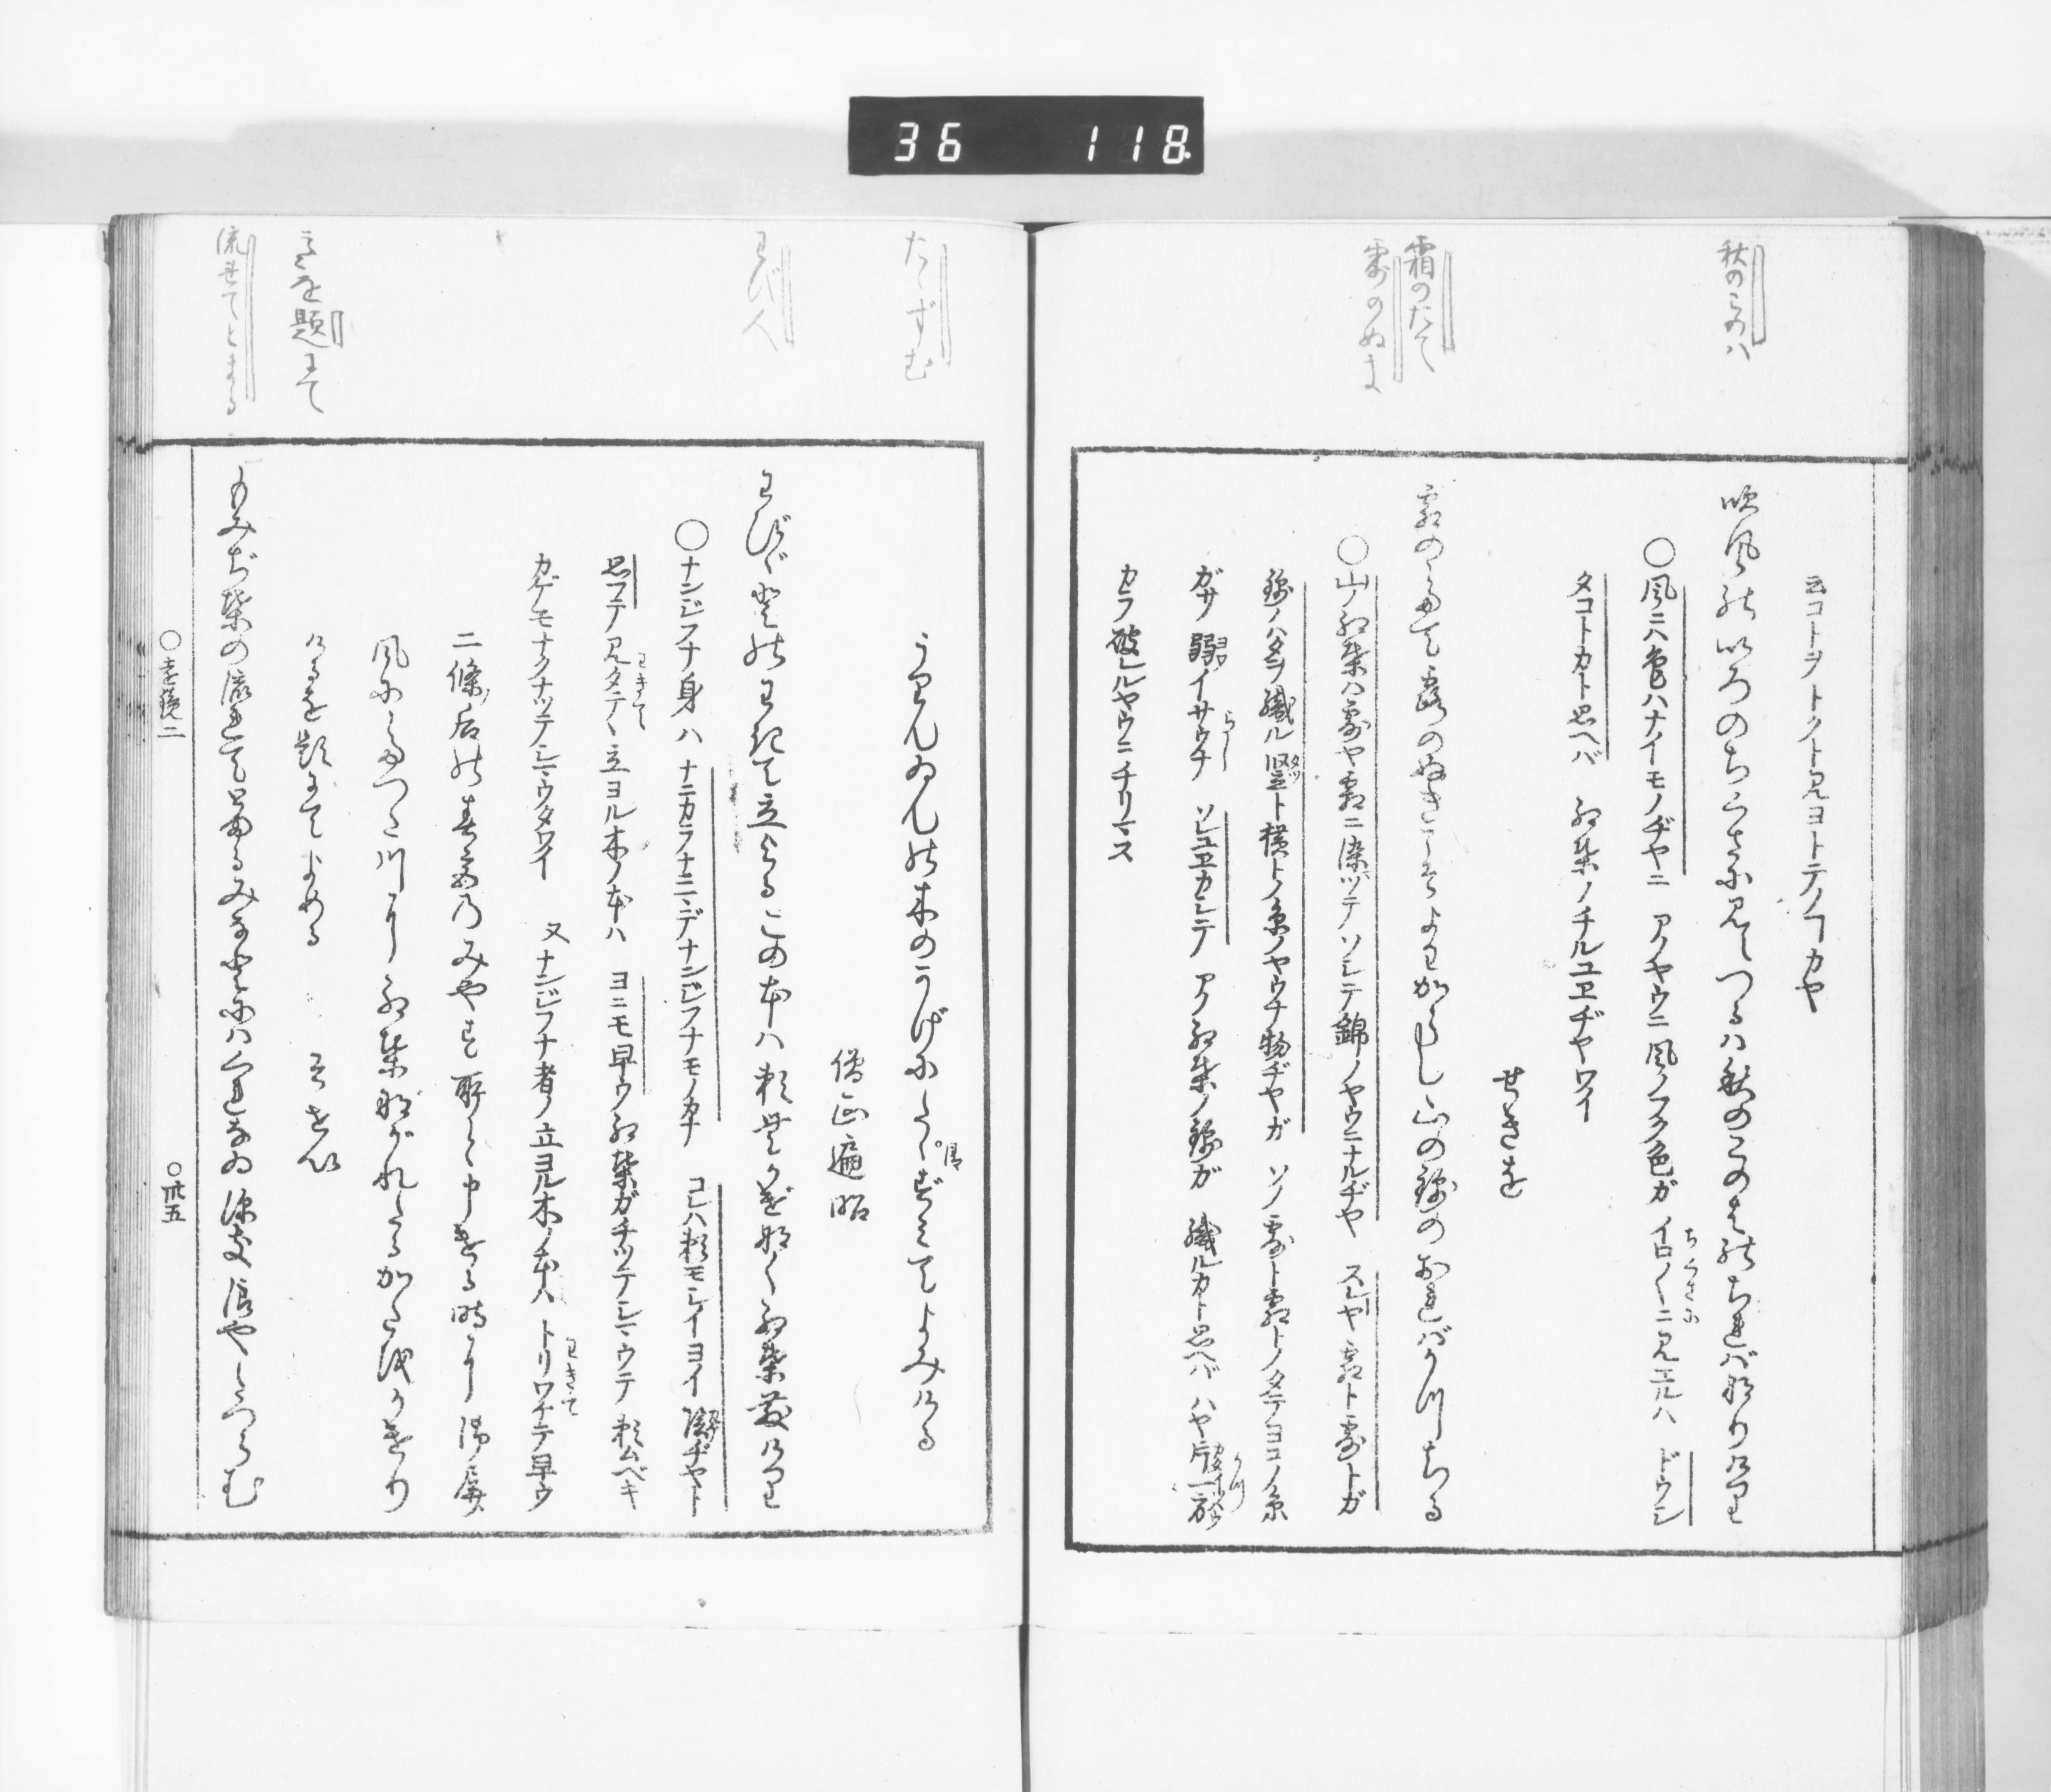 36 118
秋のこのハ
霜のたて
露のぬき
云コトヲトクト見ヨトテノコカヤ
吹風の色のちくさに見えつるハ秋のこのはのちればなりけり
○風ニハ色ハナイモノヂヤニ アノヤウニ風ノフク色ガ イロ〳〵ニ見エルハ ドウシ
ちくさに
タコトカト思ヘバ 紅葉ノチルユヱヂヤワイ
せきを
霜のたて露のぬきこそよわからし山の錦のおればかつちる
○山ノ紅葉ハ露ヤ霜ニ染ツテソシテ錦ノヤウニナルヂヤ スレヤ霜ト露トガ
錦ノハタヲ織ル竪ト横トノ糸ノヤウナ物ヂヤガ ソノ露ト霜トノタテヨコノ糸
ガサ 弱イサウナ ソレユヱカシテ アノ紅葉ノ錦ガ 織ルカト思ヘバ ハヤ
らし
かつ
カラ破レルヤウニチリマス
たゝずむ
わび人
きを題にて
流れてとまる
うりんゐんの木のかげにたゝずみてよみける
僧正遍昭
わび人のわきて立よるこの本ハ頼むかげなく紅葉散けり
○ナンジフナ身ハ ナニカラナニマデナンジフナモノカナ コレハ頼モシイヨイ陰ヂヤト
思フテ見タテヽ立ヨル木ノ本ハ ヨニモ早ウ紅葉ガチツテシマウテ 頼ムベキ
わきて
カゲモナクナツテシマウタワイ 又ナンジフナ者ノ立ヨル木ノ本ハ トリワケテ早ウ
わきて
二條ノ后の春宮のみやす所と申ける時に 御屏
風にたつた川に紅葉ながれたるかたをかけり
けるを題にてよめる そせい
もみぢ葉の流れてとまるみなとにハ紅ふかき浪やたつらむ
○遠鏡二
○卅五